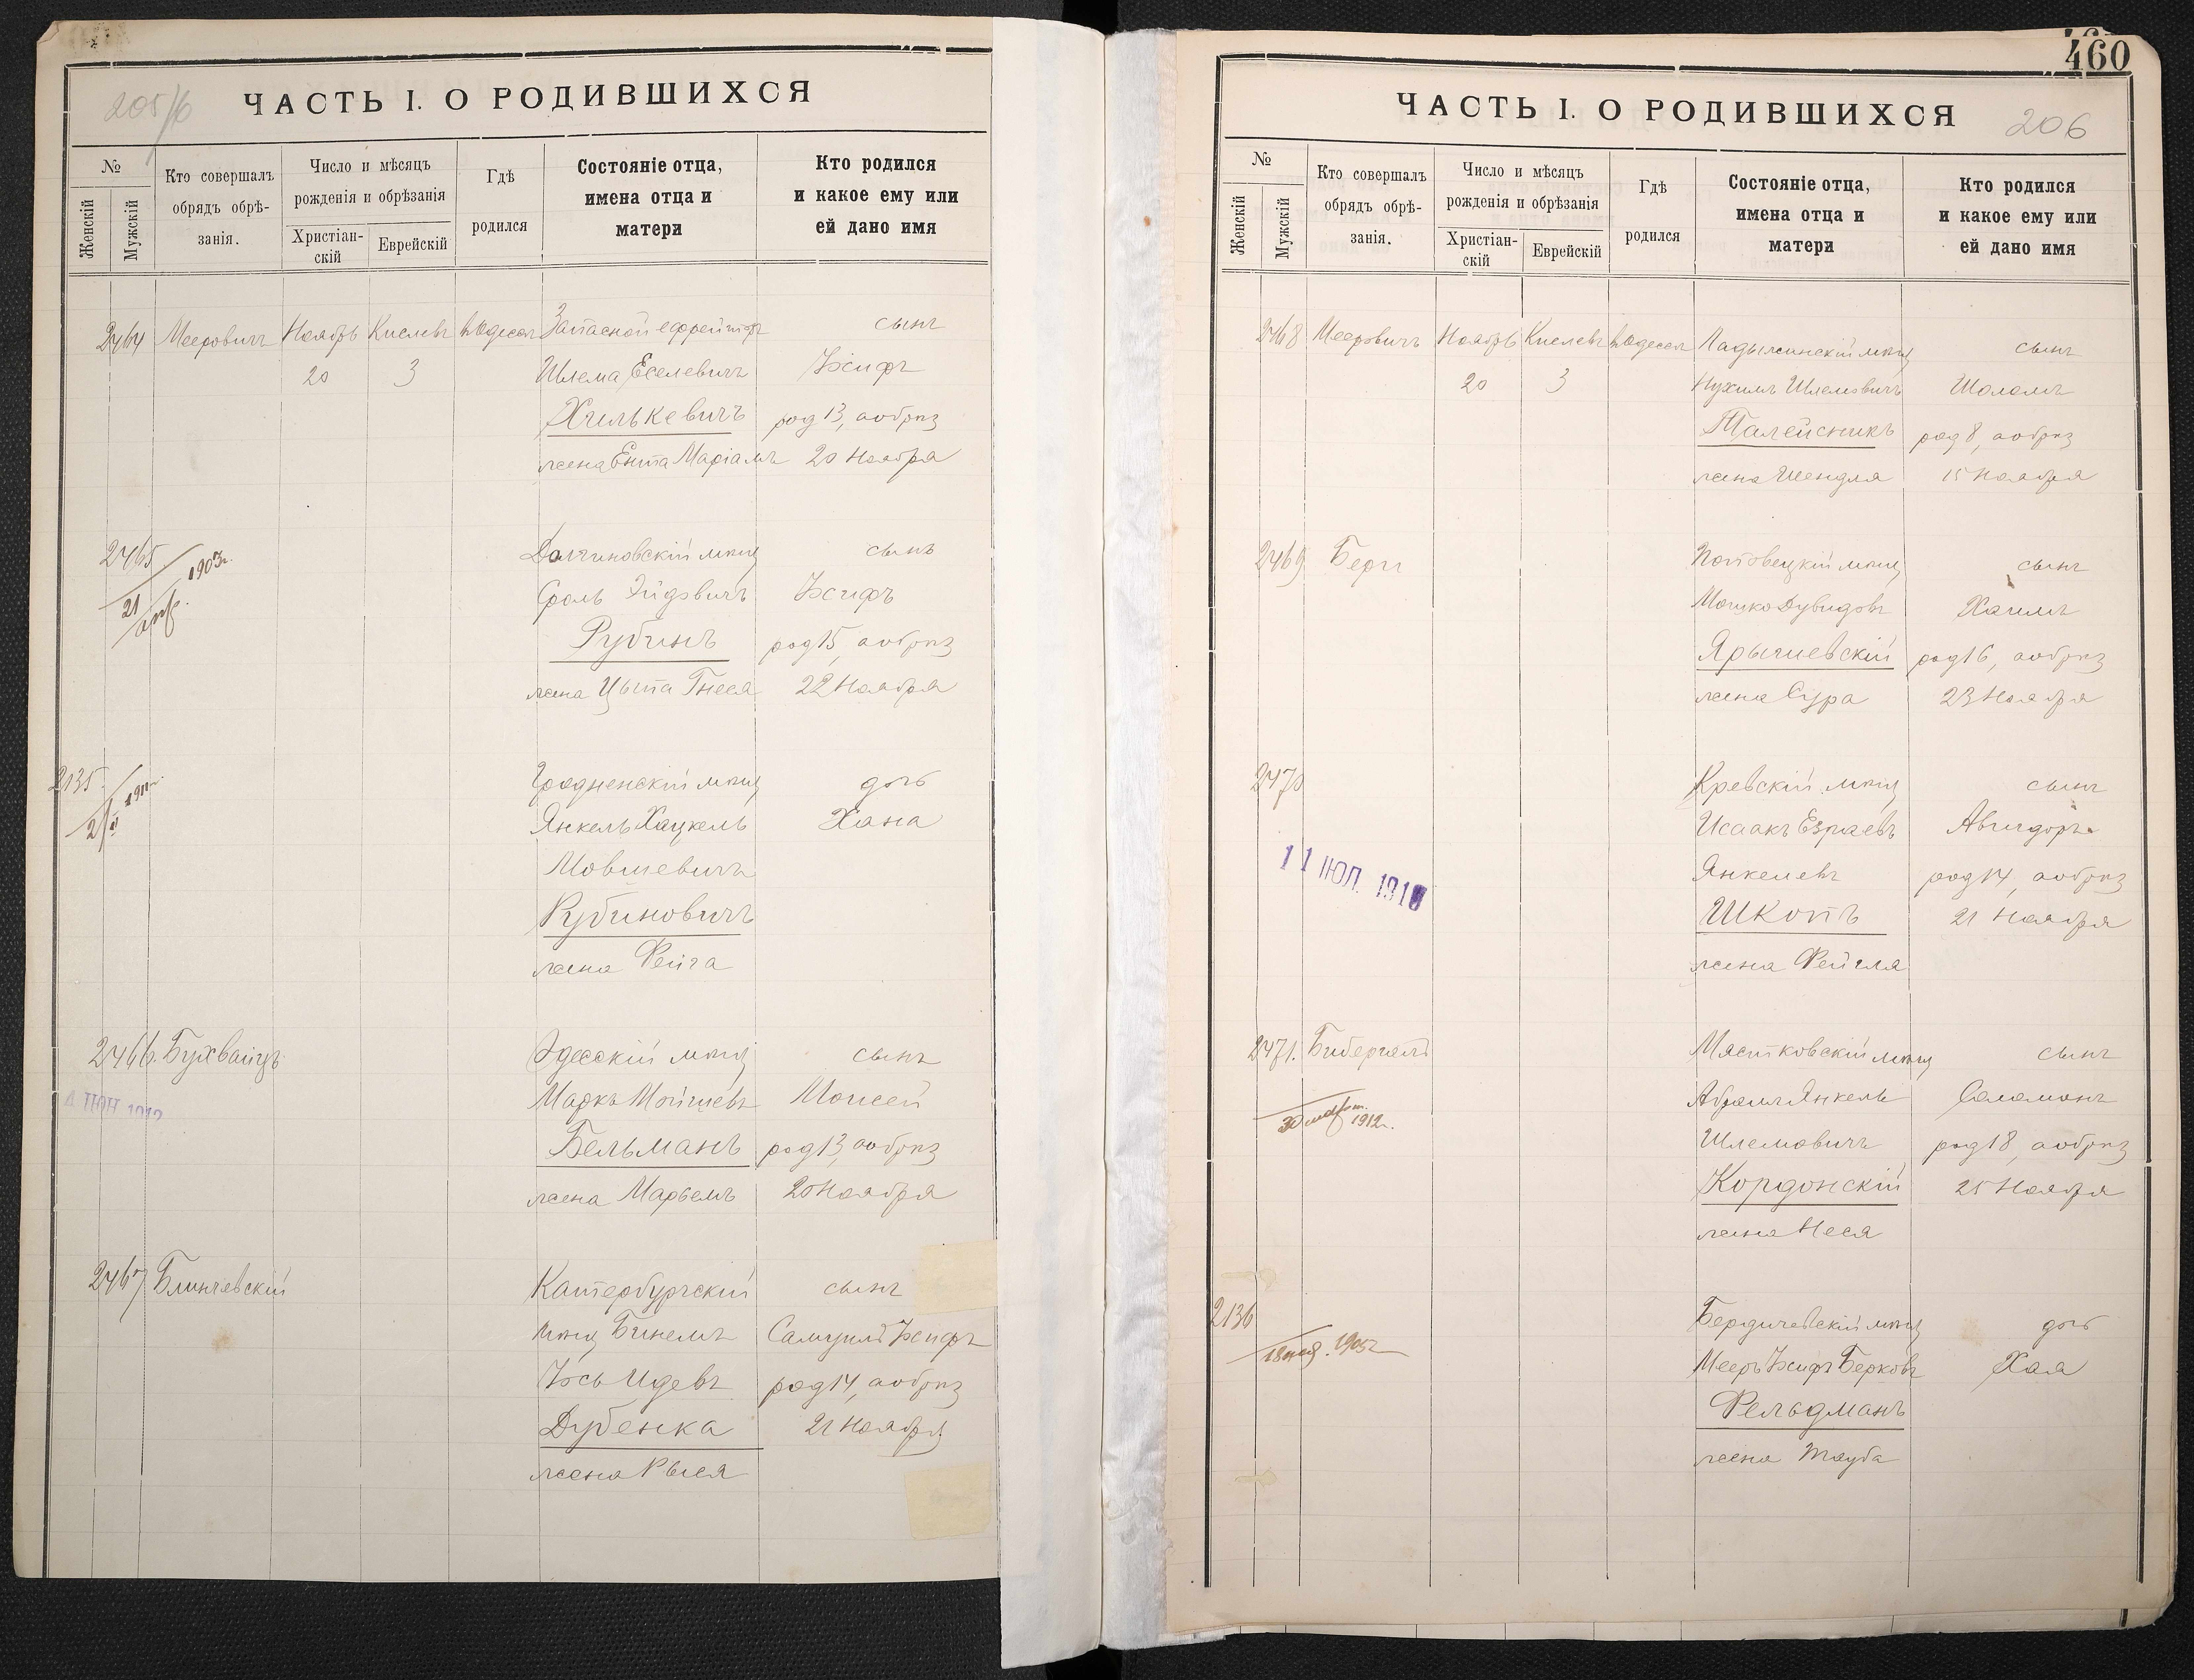 205/б
ЧАСТЬ I. О РОДИВШИХСЯ
№
Женскій
Мужскій
Кто совершалъ
обрядъ обрѣ-
занія.
Число и мѣсяцъ
рожденія и обрѣзанія
Христіан-
скій
Еврейскій
Гдѣ
родился
Состояніе отца,
имена отца и
матери
Кто родился
и какое ему или
ей дано имя
2464 Мееровичъ Ноябрь Кислевъ въ Одессѣ Запасной ефрейторъ сынъ
20 3 Шлема Еселевичъ Іосифъ
Хчилькевичъ род 13, а обрѣз
жена Ента Маріамъ 20 Ноября
2465 Долгиновскій мѣщ сынъ
1903г.
21
Сроль Іосифъ
Рубинъ род 15, а обрѣз
жена Цыпа Гнеся 22 Ноября
2135. Гродненскій мѣщ дочь
Янкель Хацкель Хана
Мовшевичъ
Рубиновичъ
жена Фейга
2466. Бухвайцъ Одесскій мѣщ сынъ
4 ІЮН 1912
Маркъ Мойшевъ Моисей
Бельманъ род 13, а обрѣз
жена Марьемъ 20 Ноября
2467 Блинчевскій Катербургскій сынъ
мѣщ Бинемъ Самуилъ Іосифъ
Іось Идевъ род 14, а обрѣз
Дубенка 21 Ноября
жена Рыся
460
ЧАСТЬ I. О РОДИВШИХСЯ
206
№
Женскій
Мужскій
Кто совершалъ
обрядъ обрѣ-
занія.
Число и мѣсяцъ
рожденія и обрѣзанія
Христіан-
скій
Еврейскій
Гдѣ
родился
Состояніе отца,
имена отца и
матери
Кто родился
и какое ему или
ей дано имя
2468 Мееровичъ Ноябрь Кислевъ въ Одессѣ Ладыжинскій мѣщ сынъ
20 3 Нухимъ Шлемовичъ Шоломъ
Талейсникъ род 8, а обрѣз
жена Шендля 15 Ноября
2469 Берг сынъ
Мошко Дувидовъ Хаимъ
Ярычевскій род 16, а обрѣз
жена Сура 23 Ноября
2470 Кревскій мѣщ сынъ
Исаакъ Езраевъ Авигдоръ
11 ІЮЛ. 191
Янкелевъ род 14, а обрѣз
Шкопъ 21 Ноября
жена Фейгля
2471. Бибергалъ Мястковскій мѣщ сынъ
30 март. 1912г.
Абрамъ Янкель Соломонъ
Шлемовичъ род 18, а обрѣз
Кордонскій 25 Ноября
жена Неся
2136 Бердичевскій мѣщ дочь
Мееръ Іосифъ Берковъ Хая
Фельдманъ
жена Тауба